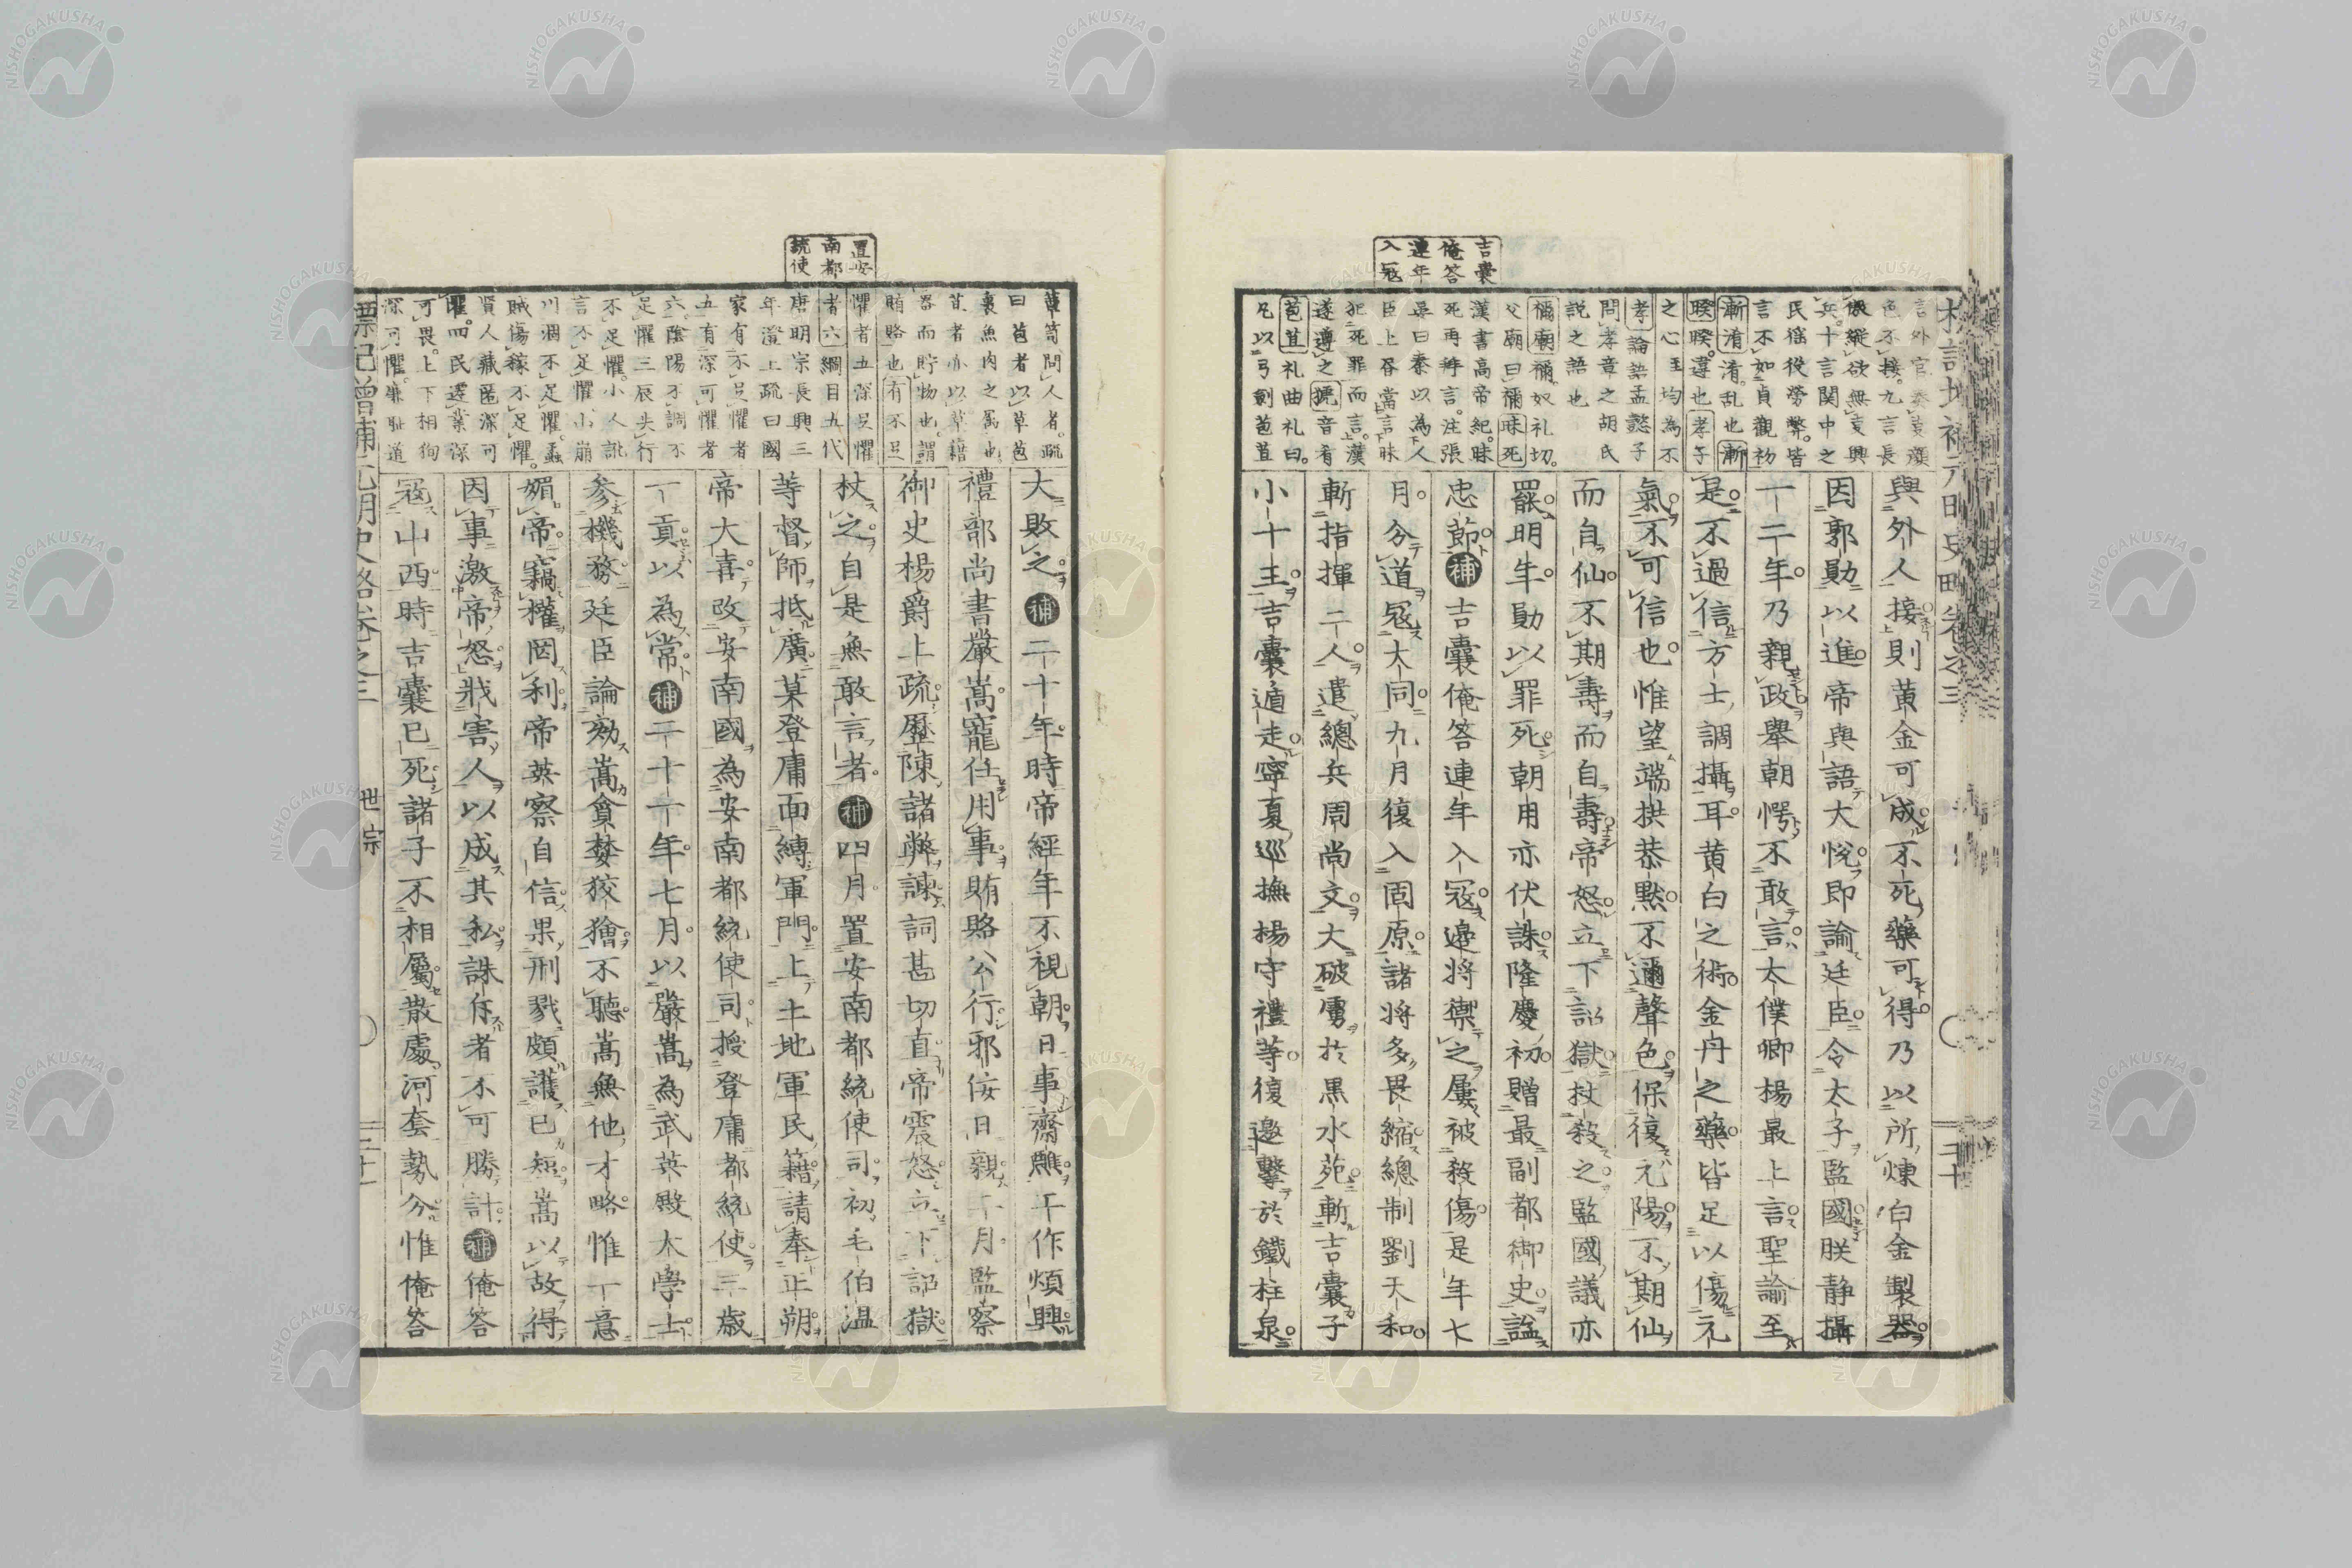 吉囊
俺答
連年
入寇
言外官奏妄瀆
色不接九言長
傲縱欲無妄興
兵十言関中之
民徭役勞弊皆
言不如貞觀初
漸淆淆乱也漸
暌暌違也孝子
之心王均為不
孝論語孟懿子
問孝章之胡氏
說之語也
禰廟禰奴礼切
父廟曰禰昧死
漢書高帝紀昧
死再拜言注張
晏曰秦以為人
臣上昏當言昧
犯死罪而言漢
遂遵之
苞苴礼曲礼曰
凡以弓劍苞苴
與外人接則黃金可成不死藥可得乃以所煉白金製器
因郭勛以進帝與語大悅即諭廷臣令太子監國朕靜攝
一二年乃親政舉朝愕不敢言太僕卿楊最上言聖諭至
是不過信方士調攝耳黃白之術金丹之藥皆足以傷元
氣不可信也惟望端拱恭默不邇聲色保復元陽不期仙
而自仙不期壽而自壽帝怒立下詔獄杖殺之監國議亦
罷明年勛以罪死朝用亦伏誅隆慶初贈最副都御史謚
忠節補吉囊俺答連年入寇邊將禦之屢被殺傷是年七
月分道寇大同九月復入固原諸將多畏縮總制劉天和
斬指揮二人遣總兵周尚文大破虜於黑水苑斬吉囊子
小十王吉囊遁走寧夏巡撫楊守禮等復邀擊於鐵柱泉
置安
南都
統使
簞笥問人者疏
曰苞者以草苞
裹魚肉之屬也
苴者亦以草藉
器而貯物也謂
賄賂也有不足
懼者五深足懼
者六綱目五代
唐明宗長興三
年澄上疏曰國
家有不足懼者
五有深可懼者
六陰陽不調不
足懼三辰失行
不足懼小人訛
言不足懼山崩
川涸不足懼蟊
賊傷稼不足懼
賢人藏匿深可
懼四民遷業深
可畏上下相狥
深可懼廉耻道
大敗之補二十年時帝經年不視朝日事齋醮工作煩興
禮部尚書嚴嵩寵任用事賄賂公行邪佞日親十月監察
御史楊爵上疏歷陳諸弊諫詞甚切直帝震怒立下詔獄
杖之自是無敢言者補四月置安南都統使司初毛伯温
等督師抵廣莫登庸面縛軍門上土地軍民籍請奉正朔
帝大喜改安南國為安南都統使司授登庸都統使三歲
一貢以為常補二十一年七月以嚴嵩為武英殿大學士
參機務廷臣論劾嵩貪婪狡獪不聽嵩無他才略惟一意
媚帝竊權罔利帝英察自信果刑戮頗護已短嵩以故得
因事激帝怒戕害人以成其私誅斥者不可勝計補俺答
寇山西時吉囊已死諸子不相屬散處河套勢分惟俺答
標記增補元明史略卷之三 世宗